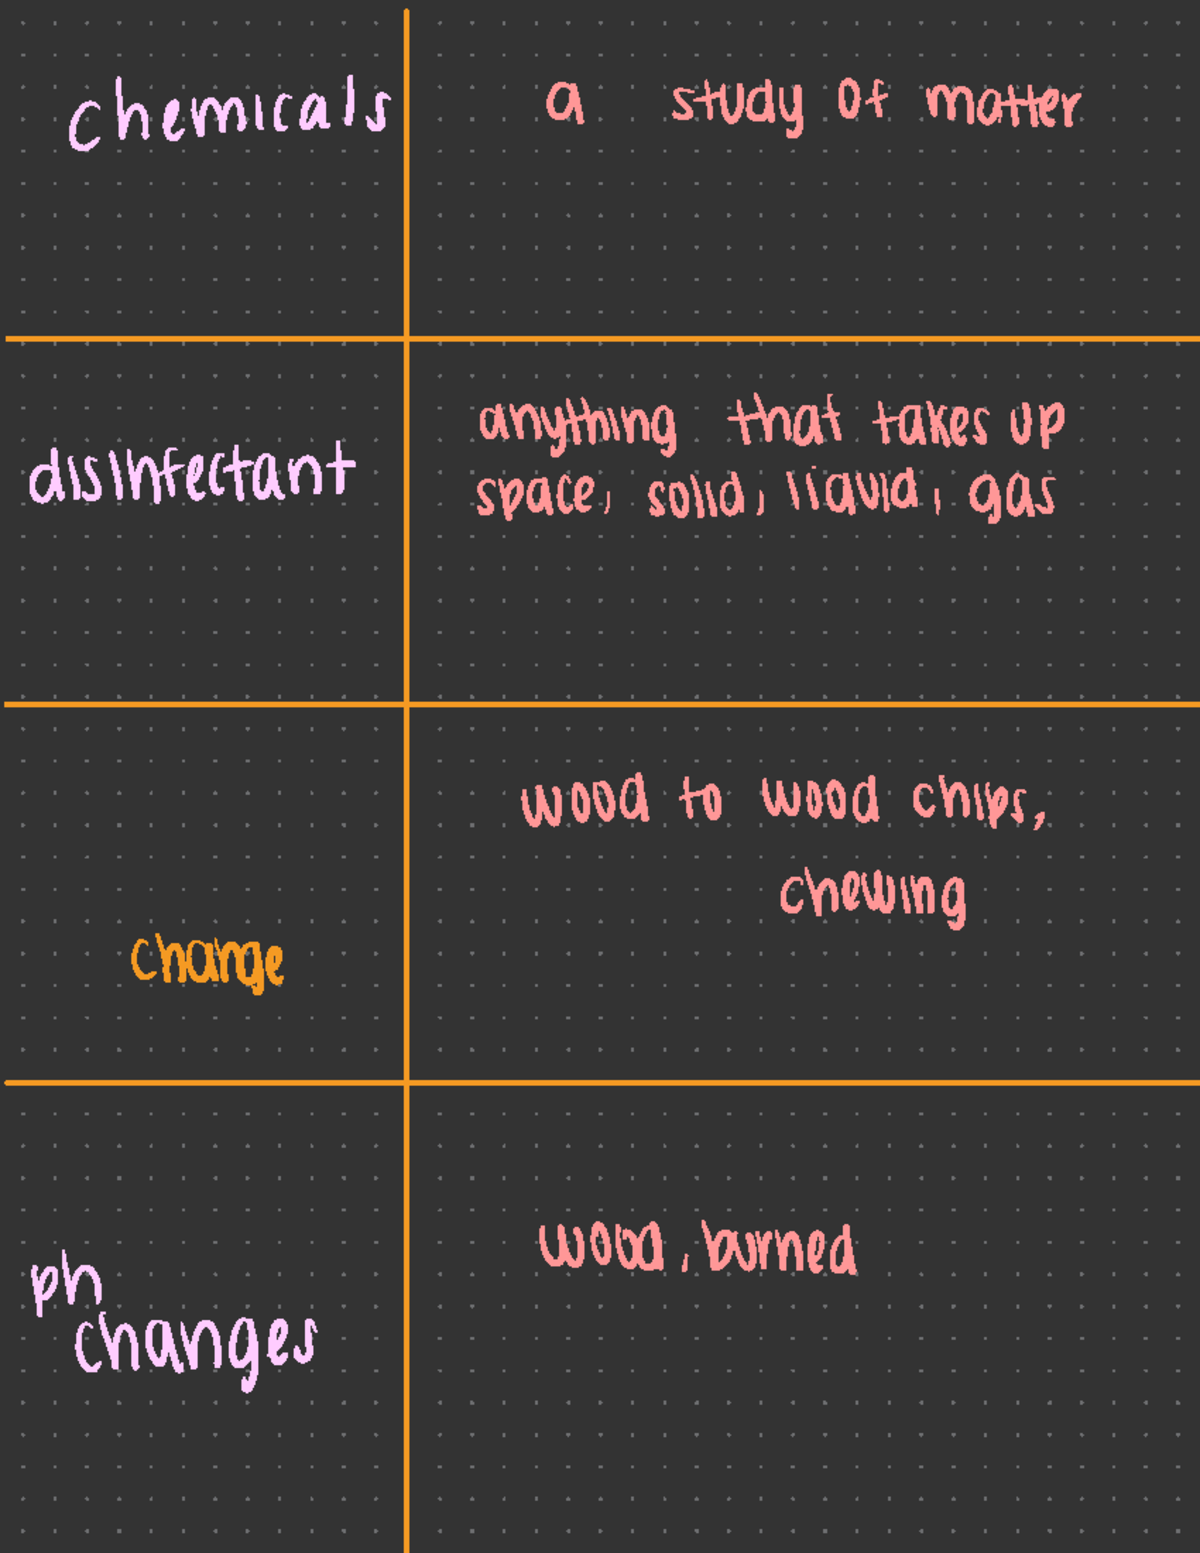 chemicals
a study of matter
disinfectant
anything that takes up
space, solid, liquid, gas
change
wood to wood chips,
chewing
ph
changes
wood, burned